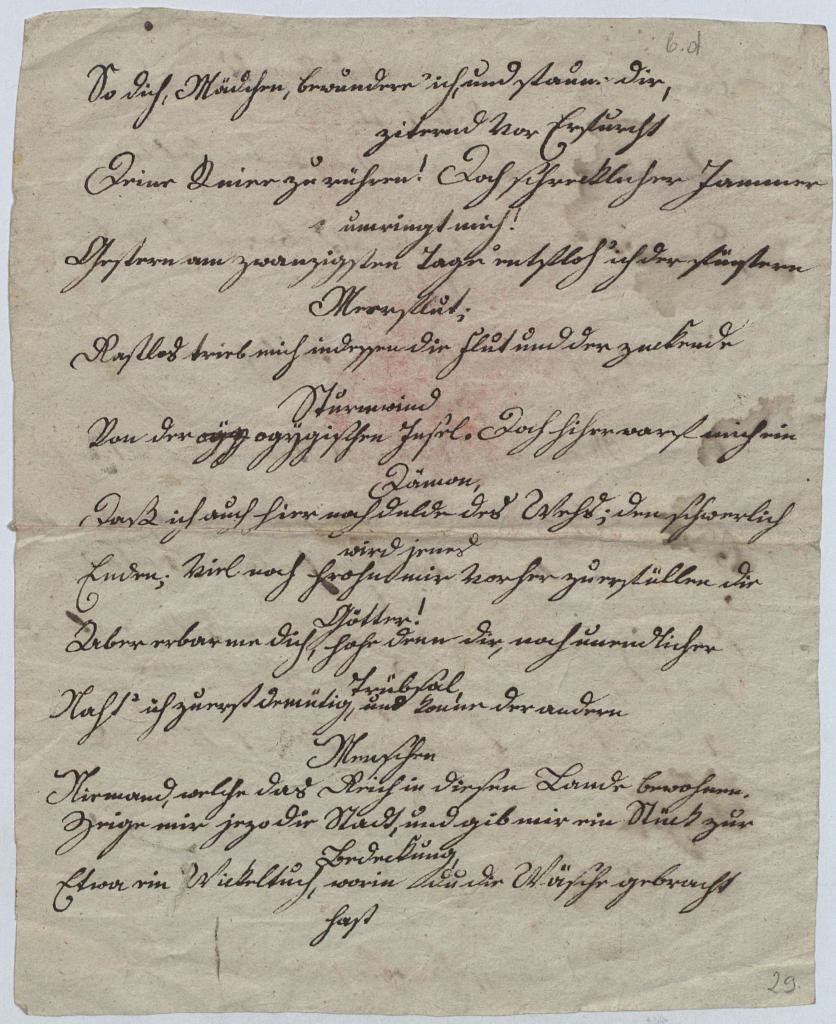 6.d
So dich, Mädchen, bewundere' ich, und staune dir,
ziternd vor Erfurcht
Deine Kniee zu rühren! Doch schrecklicher Jammer
umringt mich!
Gestern am zwanzigsten Tage entfloh' ich der finstern
Meerflut;
Rastlos trieb mich indessen die Flut und der zuckende
Sturmwind
Von der ogygischen Insel. Doch hiher warf mich ein
Dämon,
Daß ich auch hier noch dulde des Wehs; den schwerlich
wird jenes
Enden; viel noch frohn mir vorher zu erfüllen die
Götter!
Aber erbarme dich, hohe denn dir, nach unendlicher
Trübsal,
Naht' ich zuerst demütig, und kenne der andern
Menschen
Niemand, welche das Reich in diesen Lande bewohnen.
Zeige mir jezo die Stadt, und gib mir ein Stück zur
Bedeckung,
Etwa ein Wickeltuch, worin du die Wäsche gebracht
hast
29.